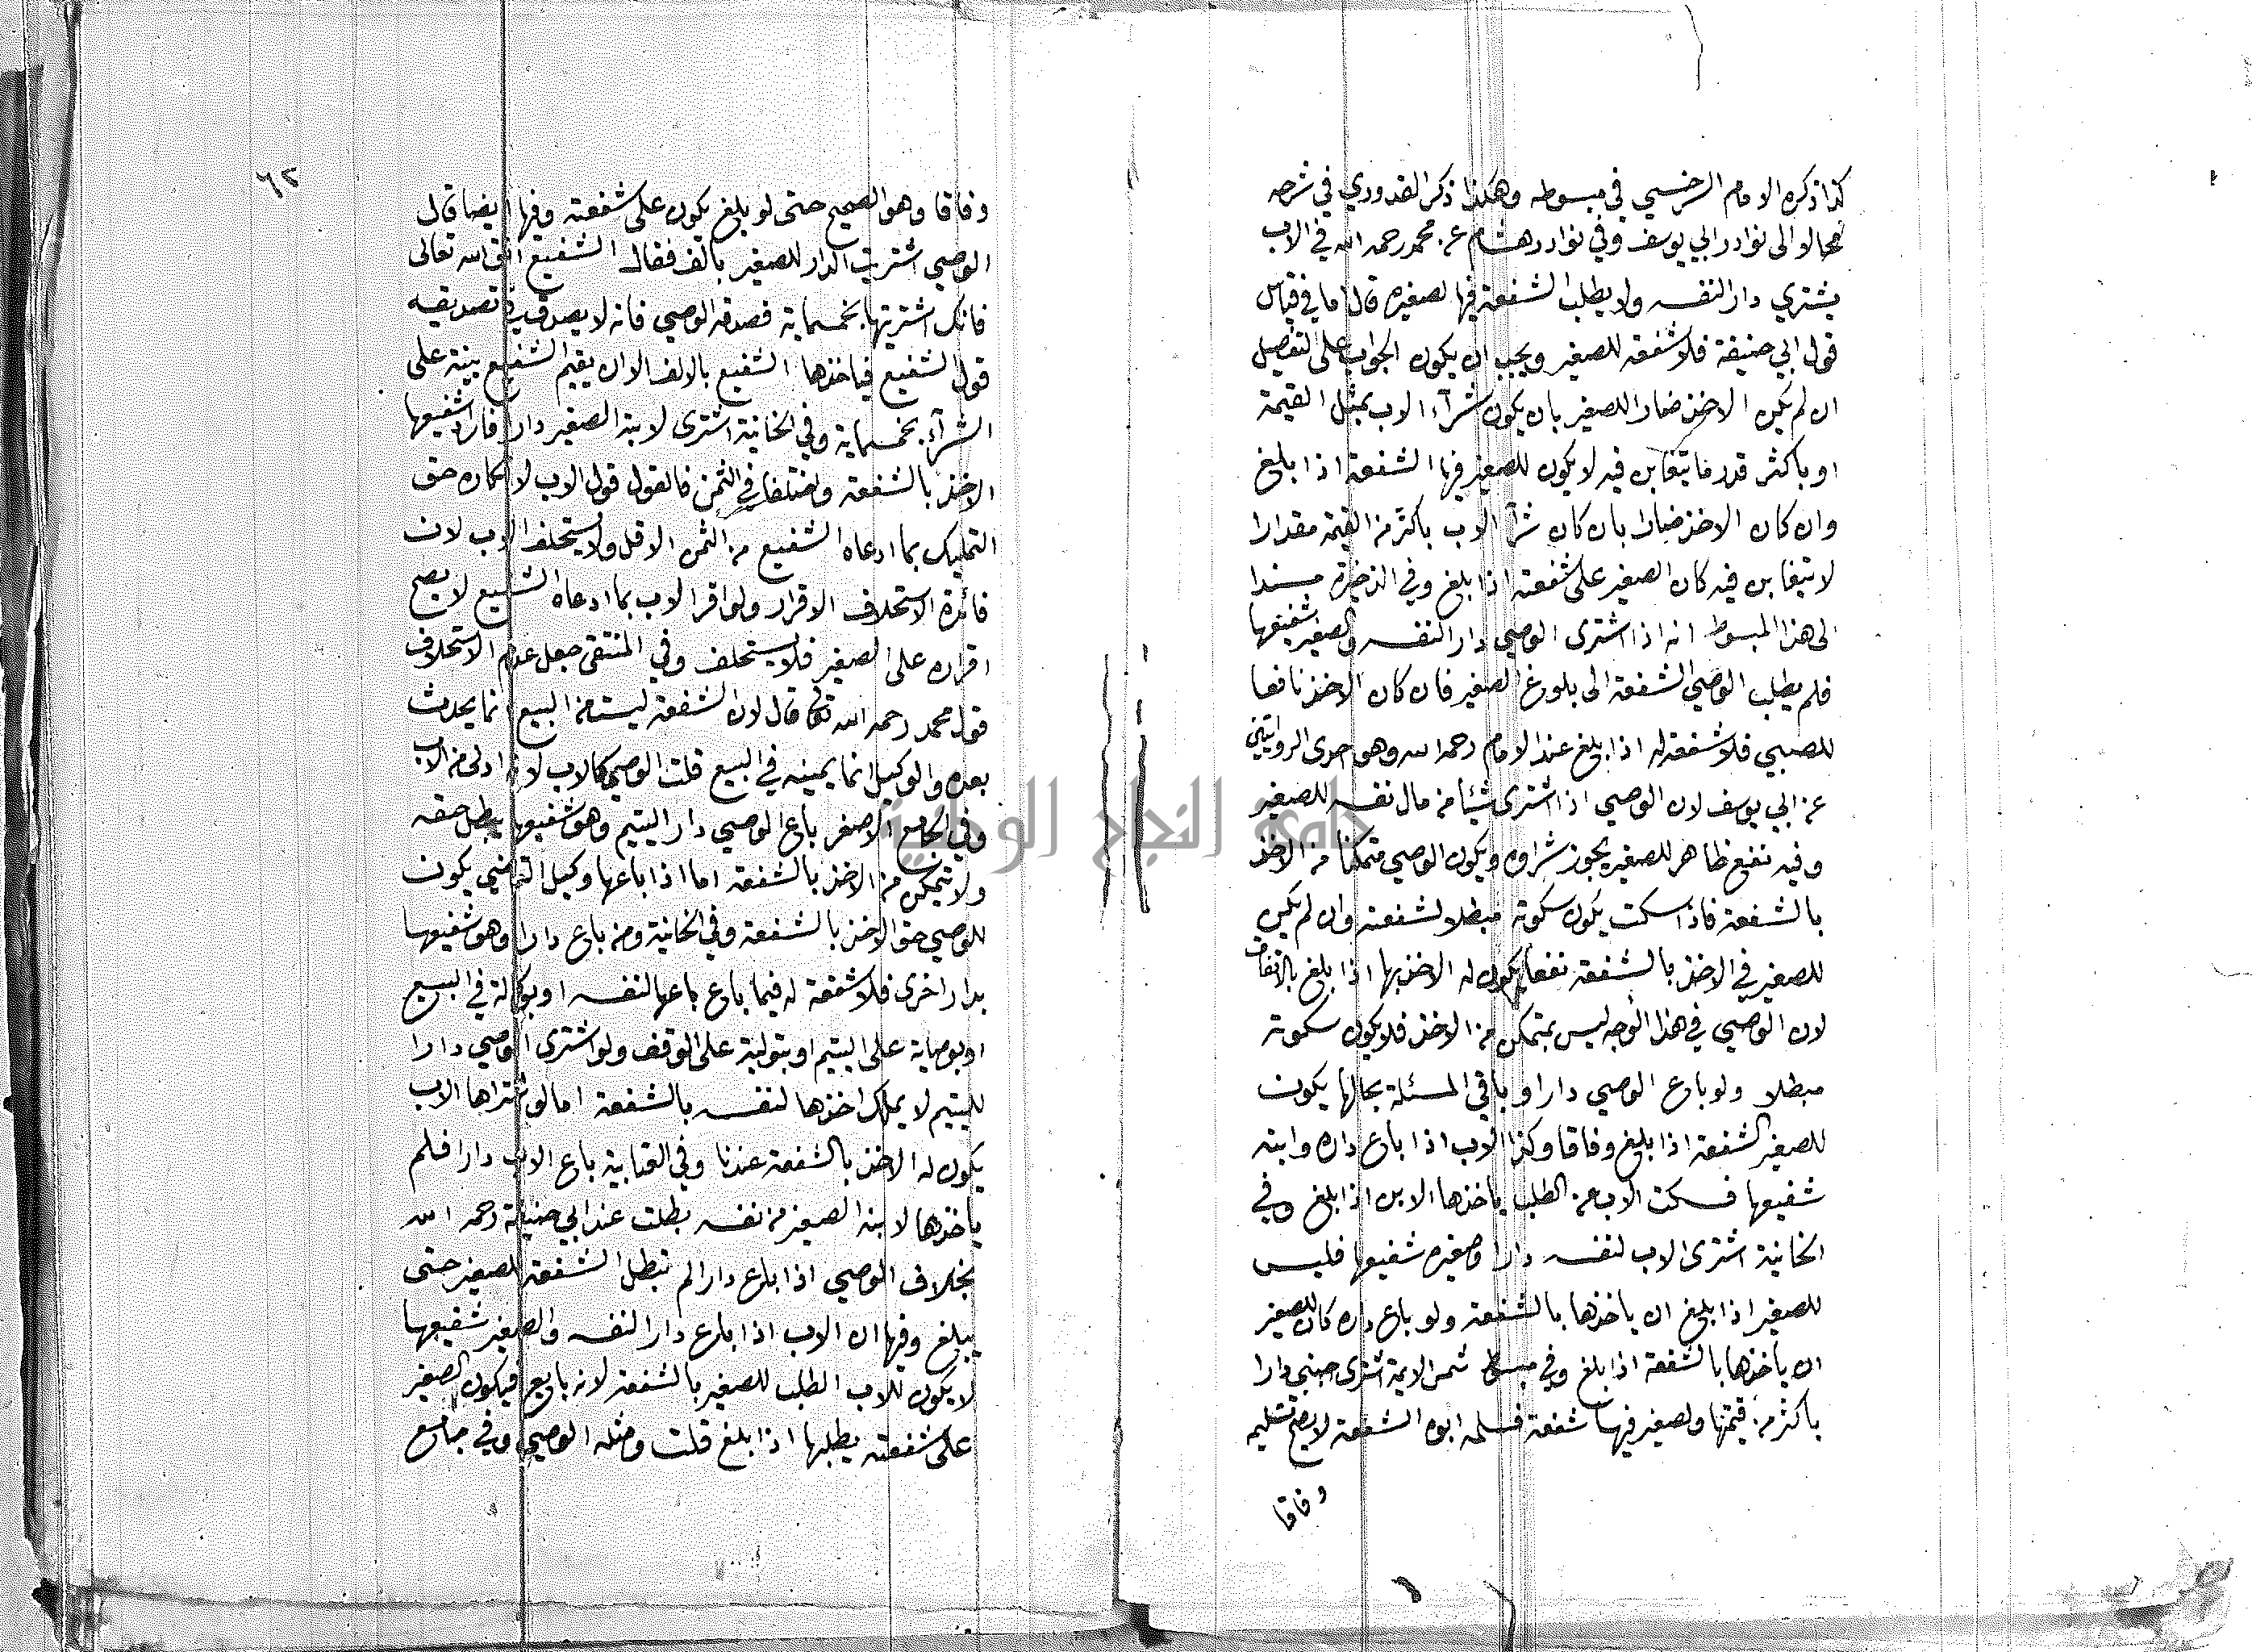 كذا ذكره الامام السرخسي في مبسوطه وهكذا ذكر القدوري في شرحه
محالو الى نوادر ابي يوسف وفي نوادر هشام عن محمد رحمه الله في الاب
يشتري دار النفسه ولا يطلب الشفعة فيها لصغيره قال اما في قياس
قول ابي حنيفة فلا شفعة للصغير ويجب ان يكون الجواب على التفصيل
ان لم يكن الاخذ ضارا للصغير بان يكون شرآء الاب بمثل القيمة
او باكثر قدر ما يتغابن فيه لا يكون للصغير فيها الشفعة اذا بلغ
وان كان الاخذ ضارا بان كان شرآ الاب باكثر من القيمة مقدارا
لا يتغابن فيه كان الصغير على شفعته اذا بلغ وفي الذخيرة مسندا
الى هذا المبسوط انه اذا اشترى الوصي دار النفسه والصغير شفيعها
فلم يطلب الوصي الشفعة الى بلوغ الصغير فان كان الاخذ نافعا
للصبي فلا شفعة له اذا بلغ عند الامام رحمه الله وهو احدى الروايتين
عن ابي يوسف لان الوصي اذا اشترى شيئا من مال نفسه للصغير
وفيه نفع ظاهر للصغير يجوز شراؤه ويكون الوصي متمكنا من الاخذ
بالشفعة فاذا سكت يكون سكوته مبطلا لشفعته وان لم يكن
للصغير في الاخذ بالشفعة نفعا يكون له الاخذ بها اذا بلغ بالاتفاق
لان الوصي في هذا الوجه ليس بمتمكن من الاخذ فلا يكون سكوته
مبطلا ولو باع الوصي دارا وباقي المسئلة بحالها يكون
للصغير الشفعة اذا بلغ وفاقا وكذا الاب اذا باع داره وابنه
شفيعها فسكت الاب عن الطلب ياخذها الابن اذا بلغ وفي
الخانية اشترى الاب لنفسه دارا وصغيره شفيعها فليس
للصغير اذا بلغ ان ياخذها بالشفعة ولو باع داره كان للصغير
ان ياخذها بالشفعة اذا بلغ وفي مبسوط شمس الايمة اشترى صبي دارا
باكثر من قيمتها ولصغير فيها شفعة فسلم ابوه الشفعة لا يصح تسليمه
وفاقا
٦٢
وفاقا وهو الصحيح حتى لو بلغ يكون على شفعته وفيها ايضا قال
الوصي اشتريت الدار للصغير بالف فقال الشفيع اتق الله تعالى
فانك اشتريتها بخمسماية فصدقه الوصي فانه لا يصدق في تصديقه
قول الشفيع فياخذها الشفيع بالالف الا ان يقيم الشفيع بينة على
الشرآء بخمسماية وفي الخانية اشترى لابنه الصغير دارا فاراد شفيعها
الاخذ بالشفعة واختلفا في الثمن فالقول قول الاب لانكاره حق
التمليك بما ادعاه الشفيع من الثمن الاقل ولا يستحلف الاب لان
فائدة الاستحلاف الاقرار ولو اقر الاب بما ادعاه الشفيع لا يصح
اقراره على الصغير فلا يستحلف وفي المنتقى جعل عدم الاستحلاف
قول محمد رحمه الله تعالى قال لان الشفعة ليست من البيع انما يحدث
بعده والوكيل انما يمينه في البيع قلت الوصي كالاب لانه ادنى من الاب
وفي الجامع الاصغر باع الوصي دار اليتيم وهو شفيعها يبطل حقه
ولا يتمكن من الاخذ بالشفعة اما اذا باعها وكيل القاضي يكون
للوصي حق الاخذ بالشفعة وفي الخانية ومن باع دارا وهو شفيعها
بدار اخرى فلا شفعة له فيما باع باعها لنفسه او بوكالة في البيع
او بوصاية على اليتيم او بتولية على الوقف ولو اشترى الوصي دارا
لليتيم لا يملك اخذها لنفسه بالشفعة اما لو اشتراها الاب
يكون له الاخذ بالشفعة عندنا وفي العتابية باع الاب دارا فلم
ياخذها لابنه الصغير من نفسه بطلت عند ابي حنيفة رحمه الله
بخلاف الوصي اذا باع دارا لم تبطل الشفعة للصغير حتى
يبلغ وفيها ان الاب اذا باع دار النفسه والصغير شفيعها
لا يكون للاب الطلب للصغير بالشفعة لانه بايع فيكون الصغير
على شفعته يطلبها اذا بلغ قلت ومثله الوصي وفي جامع
جامعة النجاح الوطنية